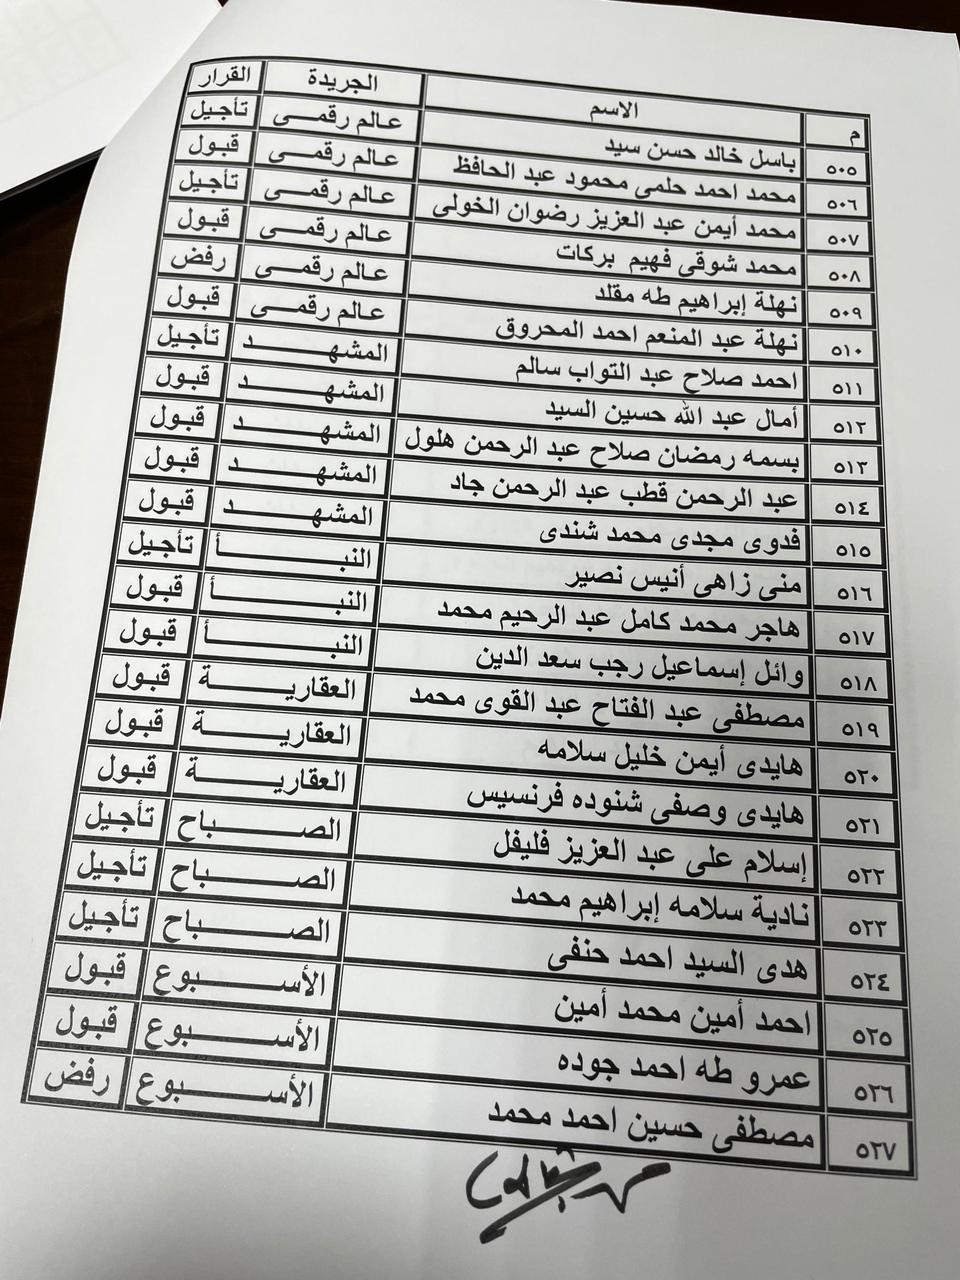 م الاسم الجريدة القرار
٥٠٥ باسل خالد حسن سيد عالم رقمى تأجيل
٥٠٦ محمد احمد حلمى محمود عبد الحافظ عالم رقمى قبول
٥٠٧ محمد أيمن عبد العزيز رضوان الخولى عالم رقمى تأجيل
٥٠٨ محمد شوقى فهيم بركات عالم رقمى قبول
٥٠٩ نهلة إبراهيم طه مقلد عالم رقمى رفض
٥١٠ نهلة عبد المنعم احمد المحروق عالم رقمى قبول
٥١١ احمد صلاح عبد التواب سالم المشهد تأجيل
٥١٢ أمال عبد الله حسين السيد المشهد قبول
٥١٣ بسمه رمضان صلاح عبد الرحمن هلول المشهد قبول
٥١٤ عبد الرحمن قطب عبد الرحمن جاد المشهد قبول
٥١٥ فدوى مجدى محمد شندى المشهد قبول
٥١٦ منى زاهى أنيس نصير النبأ تأجيل
٥١٧ هاجر محمد كامل عبد الرحيم محمد النبأ قبول
٥١٨ وائل إسماعيل رجب سعد الدين النبأ قبول
٥١٩ مصطفى عبد الفتاح عبد القوى محمد العقارية قبول
٥٢٠ هايدى أيمن خليل سلامه العقارية قبول
٥٢١ هايدى وصفى شنوده فرنسيس العقارية قبول
٥٢٢ إسلام على عبد العزيز فليفل الصباح تأجيل
٥٢٣ نادية سلامه إبراهيم محمد الصباح تأجيل
٥٢٤ هدى السيد احمد حنفى الصباح تأجيل
٥٢٥ احمد أمين محمد أمين الأسبوع قبول
٥٢٦ عمرو طه احمد جوده الأسبوع قبول
٥٢٧ مصطفى حسين احمد محمد الأسبوع رفض